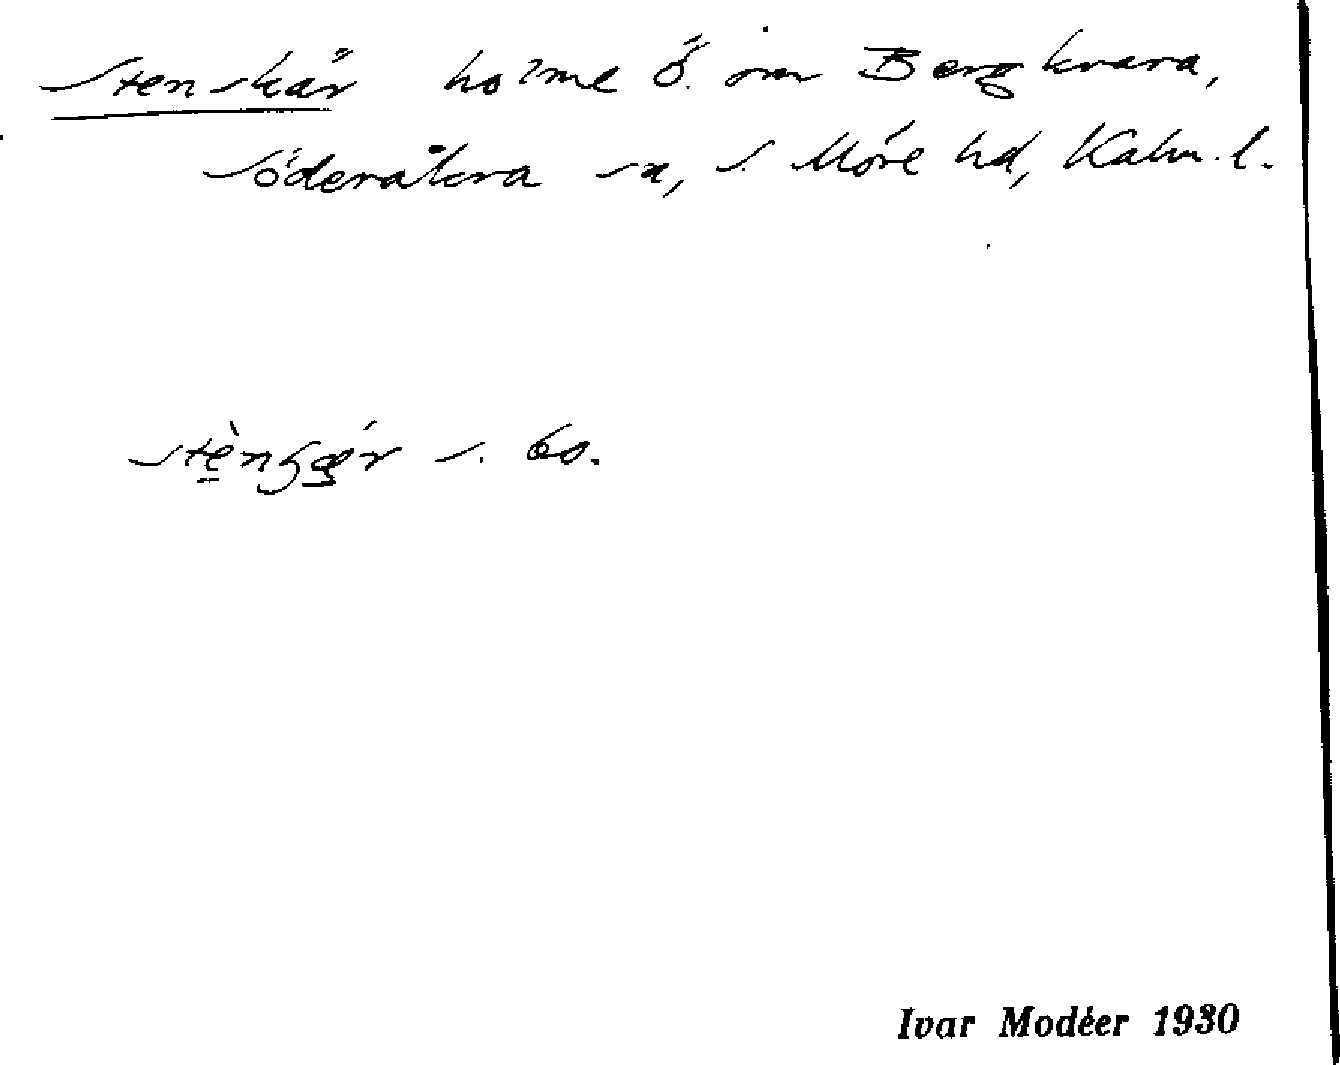 Stenskär holme ö. om Bergkvara,
Söderåkra sn, S. Möre hd, Kalm. l.
s. bo.
Ivar Modéer 1930